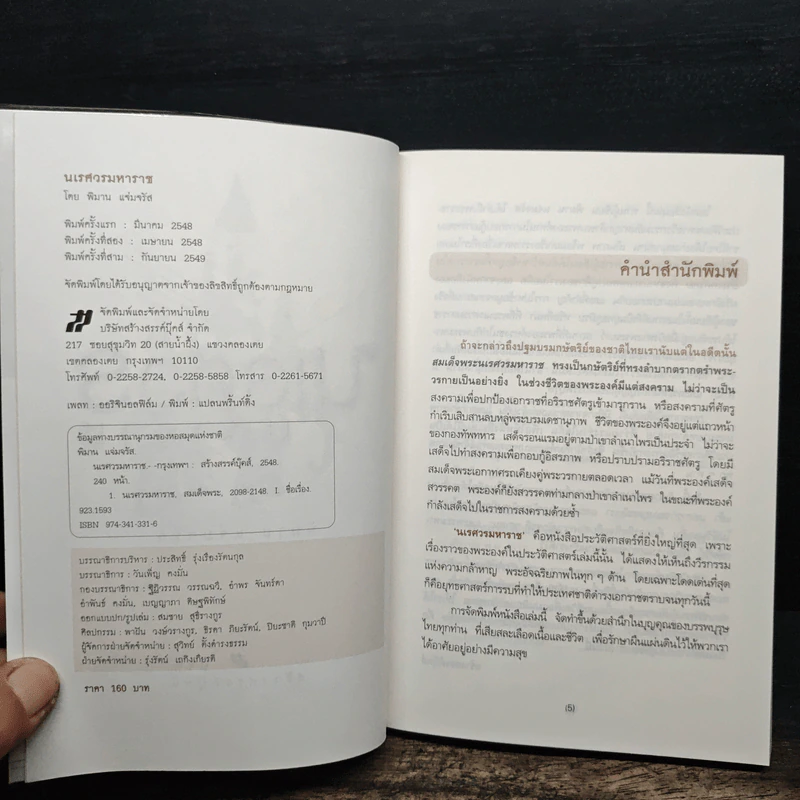 นเรศวรมหาราช
โดย พิมาน แจ่มจรัส
พิมพ์ครั้งแรก : มีนาคม 2548
พิมพ์ครั้งที่สอง : เมษายน 2548
พิมพ์ครั้งที่สาม : กันยายน 2549
จัดพิมพ์โดยได้รับอนุญาตจากเจ้าของลิขสิทธิ์ถูกต้องตามกฎหมาย
จัดพิมพ์และจัดจำหน่ายโดย
บริษัทสร้างสรรค์บุ๊คส์ จำกัด
217 ซอยสุขุมวิท 20 (สายน้ำผึ้ง) แขวงคลองเตย
เขตคลองเตย กรุงเทพฯ 10110
โทรศัพท์ 0-2258-2724, 0-2258-5858 โทรสาร 0-2261-5671
เพลท : ออริจินอลฟิล์ม / พิมพ์ : แปลนพริ้นท์ติ้ง
ข้อมูลทางบรรณานุกรมของหอสมุดแห่งชาติ
พิมาน แจ่มจรัส.
นเรศวรมหาราช.- -กรุงเทพฯ : สร้างสรรค์บุ๊คส์, 2548.
240 หน้า.
1. นเรศวรมหาราช, สมเด็จพระ, 2098-2148. I. ชื่อเรื่อง.
923.1593
ISBN 974-341-331-6
บรรณาธิการบริหาร : ประสิทธิ์ รุ่งเรืองรัตนกุล
บรรณาธิการ : วันเพ็ญ คงมั่น
กองบรรณาธิการ : ฐิฏิวรรณ วรรณฉวี, อำพร จันทร์ดา
อำพันธ์ คงมั่น, เบญญาภา ดิษฐพิทักษ์
ออกแบบปก/รูปเล่ม : สมชาย สุธีรางกูร
ศิลปกรรม : พาฝัน วงษ์วรางกูร, ธิรดา ภิยะรัตน์, ปิยะชาติ กุมวาปี
ผู้จัดการฝ่ายจัดจำหน่าย : สุวิทย์ ตั้งดำรงธรรม
ฝ่ายจัดจำหน่าย : รุ่งรัตน์ เถกิงเกียรติ
ราคา 160 บาท
คำนำสำนักพิมพ์
ถ้าจะกล่าวถึงปฐมบรมกษัตริย์ของชาติไทยเรานับแต่ในอดีตนั้น
สมเด็จพระนเรศวรมหาราช ทรงเป็นกษัตริย์ที่ทรงลำบากตรากตรำพระ-
วรกายเป็นอย่างยิ่ง ในช่วงชีวิตของพระองค์มีแต่สงคราม ไม่ว่าจะเป็น
สงครามเพื่อปกป้องเอกราชที่อริราชศัตรูเข้ามารุกราน หรือสงครามที่ศัตรู
กำเริบเสิบสานลบหลู่พระบรมเดชานุภาพ ชีวิตของพระองค์จึงอยู่แต่แถวหน้า
ของกองทัพทหาร เสด็จรอนแรมอยู่ตามป่าเขาลำเนาไพรเป็นประจำ ไม่ว่าจะ
เสด็จไปทำสงครามเพื่อกอบกู้อิสรภาพ หรือปราบปรามอริราชศัตรู โดยมี
สมเด็จพระเอกาทศรถเคียงคู่พระวรกายตลอดเวลา แม้วันที่พระองค์เสด็จ
สวรรคต พระองค์ก็ยังสวรรคตท่ามกลางป่าเขาลำเนาไพร ในขณะที่พระองค์
กำลังเสด็จไปในราชการสงครามด้วยซ้ำ
'นเรศวรมหาราช' คือหนังสือประวัติศาสตร์ที่ยิ่งใหญ่ที่สุด เพราะ
เรื่องราวของพระองค์ในประวัติศาสตร์เล่มนี้นั้น ได้แสดงให้เห็นถึงวีรกรรม
แห่งความกล้าหาญ พระอัจฉริยภาพในทุก ๆ ด้าน โดยเฉพาะโดดเด่นที่สุด
ก็คือยุทธศาสตร์การรบที่ทำให้ประเทศชาติดำรงเอกราชตราบจนทุกวันนี้
การจัดพิมพ์หนังสือเล่มนี้ จัดทำขึ้นด้วยสำนึกในบุญคุณของบรรพบุรุษ
ไทยทุกท่าน ที่เสียสละเลือดเนื้อและชีวิต เพื่อรักษาผืนแผ่นดินไว้ให้พวกเรา
ได้อาศัยอยู่อย่างมีความสุข
(5)